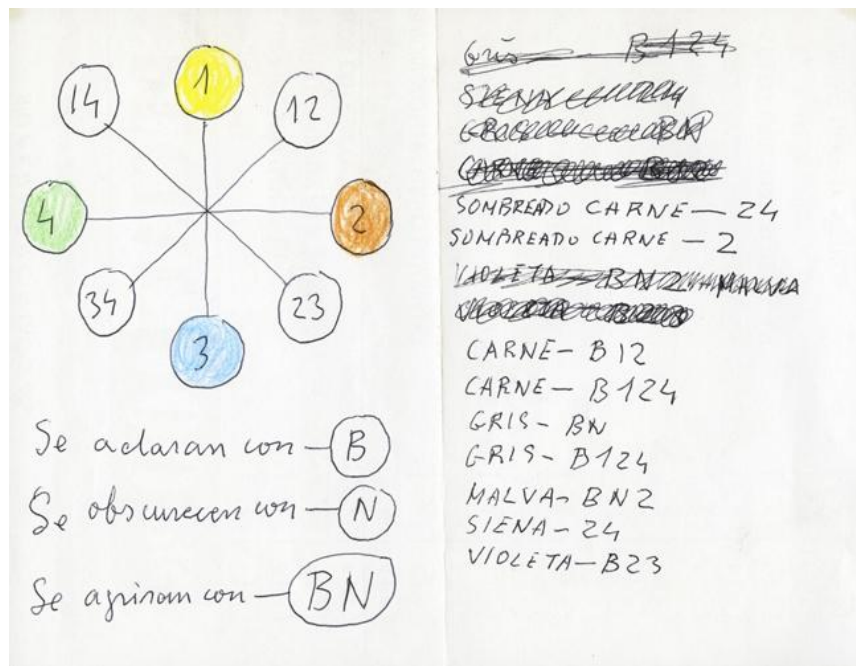 1
14
12
4
2
34
23
3
Se aclaran con — B
Se obscurecen con — N
Se agrisan con — BN
Gris — B124
CARNE
SOMBREADO CARNE — 24
SOMBREADO CARNE — 2
VIOLETA — BN2 MALVA
CARNE — B12
CARNE — B124
GRIS — BN
GRIS — B124
MALVA — BN2
SIENA — 24
VIOLETA — B23